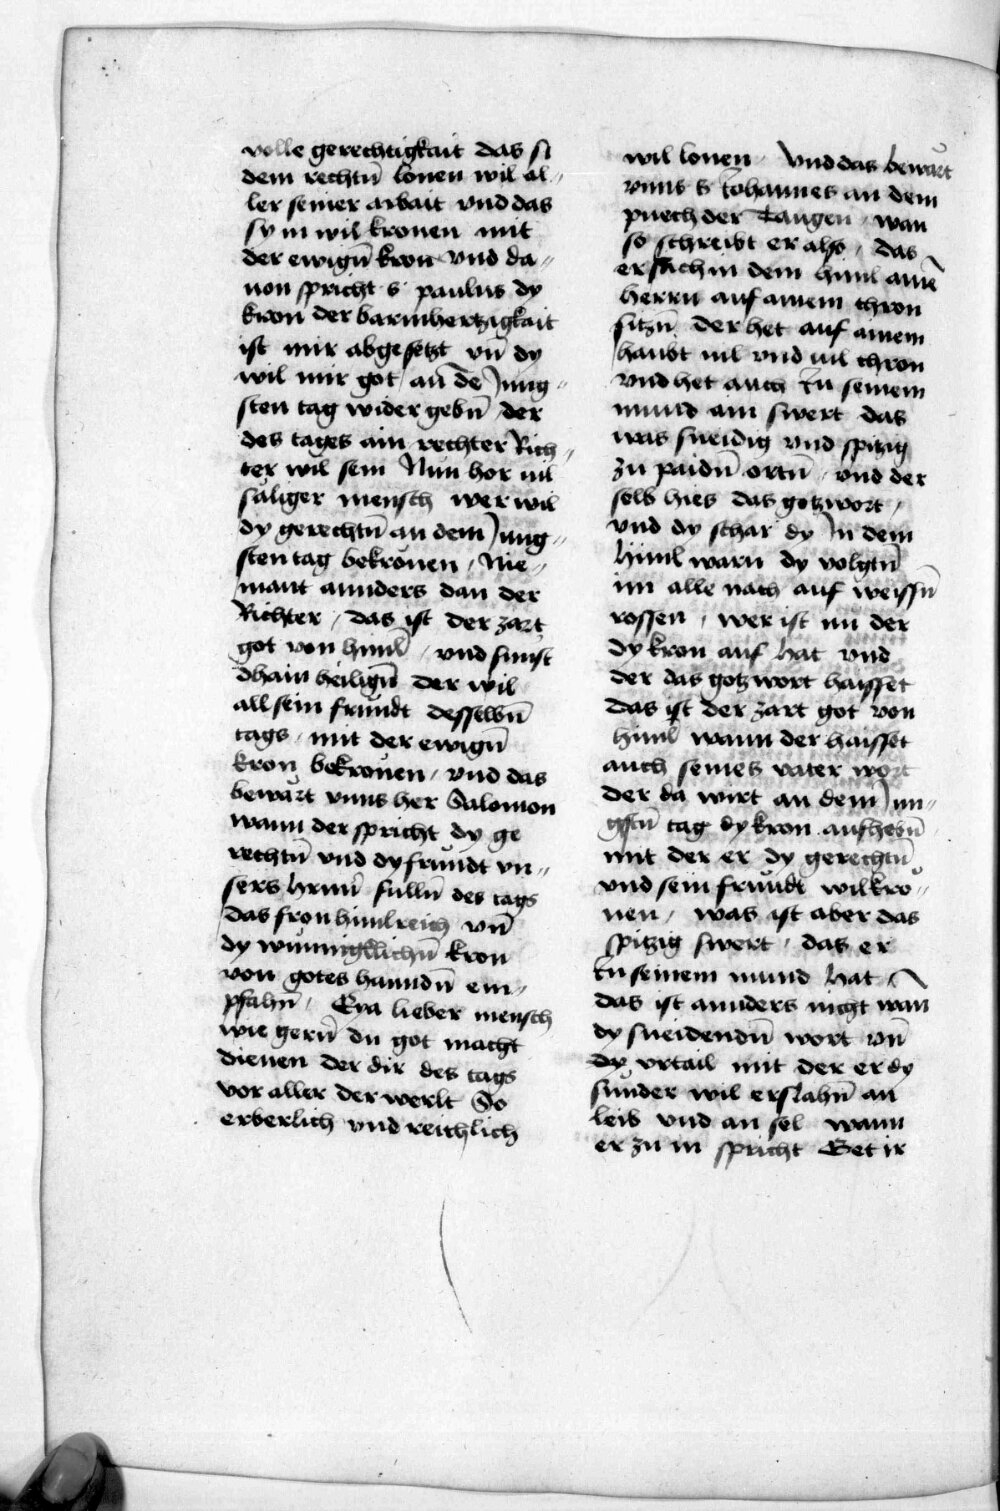 volle gerechtigkait das si
dem rechtn̄ lonen wil al„
ler seiner arbait vnd das
sy in wil kronen mit
der ewign̄ kron vnd da„
uon spricht s paulus dy
kron der barmhertzigkait
ist mir abgesetzt vn̄ dy
wil mir got an de Jung„
sten tag wider gebn̄ der
des tages ain rechter Rich„
ter wil sein Nun hor uil
saliger mensch wer wil
dy gerechtn̄ an dem Jung„
sten tag bekronen / Nie„
mant annders dan der
Richter / das ist der zart
got von himl / vnd sunst
dhain heilign̄ der wil
all sein frundt desselbn̄
tags mit der ewign̄
kron bekronen / vnd das
bewart vnns her Salomon
wann der spricht dy ge
rechtn̄ vnd dy frundt vn„
sers hrnn̄ sulln̄ des tags
das fron himlreich vn̄
dy wunnigklichn̄ kron
von gotes hanndn̄ em„
pfahn̄ / Eya lieber mensch
wie gern̄ du got macht
dienen der dir des tags
vor aller der werlt So
erberlich vnd reichlich
wil lonen / Vnd das bewart
vnns s Johannes an dem
puech der Taugen / wan
so schreibt er also / das
er sach in dem himl aine
herrn auf ainem thron
sitzn̄ der het auf ainem
haubt uil vnd uil chron
vnd het auch In seinem
mund ain swert das
was sneidig vnd spitzig
zu paidn̄ ortn̄ / vnd der
selb hies das gotzwort /
vnd dy schar dy In dem
himl warn dy volgtn̄
im alle nach auf weissn̄
rossen / wer ist nu der
dy kron auf hat vnd
der das gotzwort haisset
das ist der zart got von
himl wann der haisset
auch seines vater wort
der da wirt an dem Jun„
gstn̄ tag dy kron aufhebn̄
mit der er dy gerechtn̄
vnd sein frundt wil kro„
nen / was ist aber das
spitzig swert / das er
In seinem mund hat
das ist annders nicht wan
dy sneidendn̄ wort vn̄
dy vrtail mit der er dy
sunder wil erslahn̄ an
leib vnd an sel wann
er zu in spricht Get ir